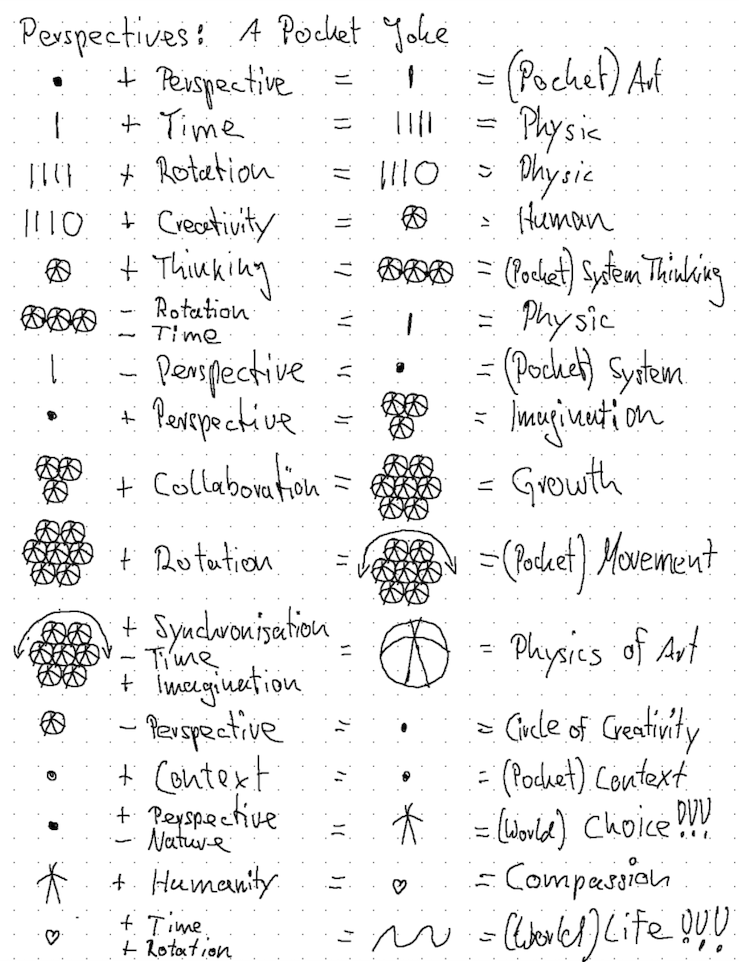 Perspectives: A Pocket Joke
• + Perspective = | = (Pocket) Art
| + Time = |||| = Physic
|||| + Rotation = |||O = Physic
|||O + Creativity = = Human
+ Thinking = = (Pocket) System Thinking
- Rotation
- Time = | = Physic
| - Perspective = • = (Pocket) System
• + Perspective = = Imagination
+ Collaboration = = Growth
+ Rotation = = (Pocket) Movement
+ Synchronisation
- Time = = Physics of Art
+ Imagination
- Perspective = • = Circle of Creativity
+ Context = = (Pocket) Context
• + Perspective
- Nature = = (World) Choice!!!
+ Humanity = ♡ = Compassion
♡ + Time
+ Rotation = = (World) Life!!!